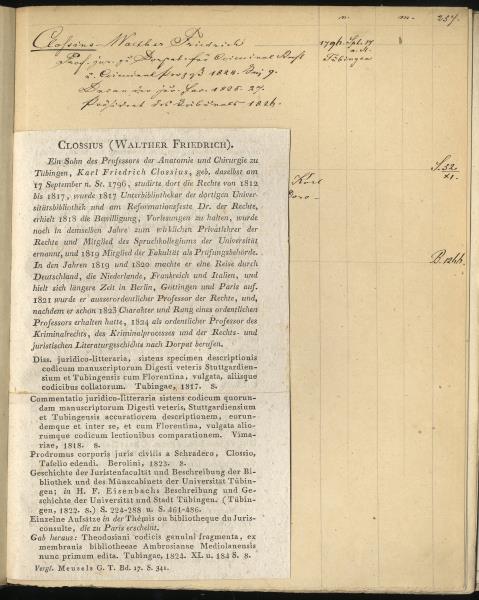 n. m. 257.
Clossius Walther Friedrich
1796. Spt. 17
Tübingen
1824.
Präsident des Tribunals 1826.
S. 52.
CLOSSIUS (WALTHER FRIEDRICH).
Ein Sohn des Professors der Anatomie und Chirurgie zu
Tübingen, Karl Friedrich Clossius, geb. daselbst am
17 September n. St. 1796, studirte dort die Rechte von 1812
bis 1817, wurde 1817 Unterbibliothekar der dortigen Univer-
sitätsbibliothek und am Reformationsfeste Dr. der Rechte,
erhielt 1818 die Bewilligung, Vorlesungen zu halten, wurde
noch in demselben Jahre zum wirklichen Privatlehrer der
Rechte und Mitglied des Spruchkollegiums der Universität
ernannt, und 1819 Mitglied der Fakultät als Prüfungsbehörde.
In den Jahren 1819 und 1820 machte er eine Reise durch
Deutschland, die Niederlande, Frankreich und Italien, und
hielt sich längere Zeit in Berlin, Göttingen und Paris auf.
1821 wurde er ausserordentlicher Professor der Rechte, und,
nachdem er schon 1823 Charakter und Rang eines ordentlichen
Professors erhalten hatte, 1824 als ordentlicher Professor des
Kriminalrechts, des Kriminalprocesses und der Rechts- und
juristischen Literaturgeschichte nach Dorpat berufen.
Diss. juridico-litteraria, sistens specimen descriptionis
codicum manuscriptorum Digesti veteris Stuttgardien-
sium et Tubingensis cum Florentina, vulgata, aliisque
codicibus collatorum. Tubingae, 1817. 8.
Commentatio juridico-litteraria sistens codicum quorun-
dam manuscriptorum Digesti veteris, Stuttgardiensium
et Tubingensis accuratiorem descriptionem, eorun-
demque et inter se, et cum Florentina, vulgata alio-
rumque codicum lectionibus comparationem. Vima-
riae, 1818. 8.
Prodromus corporis juris civilis a Schradero, Clossio,
Tafelio edendi. Berolini, 1823. 8.
Geschichte der Juristenfacultät und Beschreibung der Bi-
bliothek und des Münzcabinets der Universität Tübin-
gen; in H. F. Eisenbachs Beschreibung und Ge-
schichte der Universität und Stadt Tübingen. (Tübin-
gen, 1822. 8.) S. 224-288 u. S. 461-486.
Einzelne Aufsätze in der Thémis ou bibliotheque du Juris-
consulte, die zu Paris erscheint.
Gab heraus: Theodosiani codicis genuini fragmenta, ex
membranis bibliothecae Ambrosianae Mediolanensis
nunc primum edita. Tubingae, 1824. XL u. 184 S. 8.
Vergl. Meusels G. T. Bd. 17. S. 341.